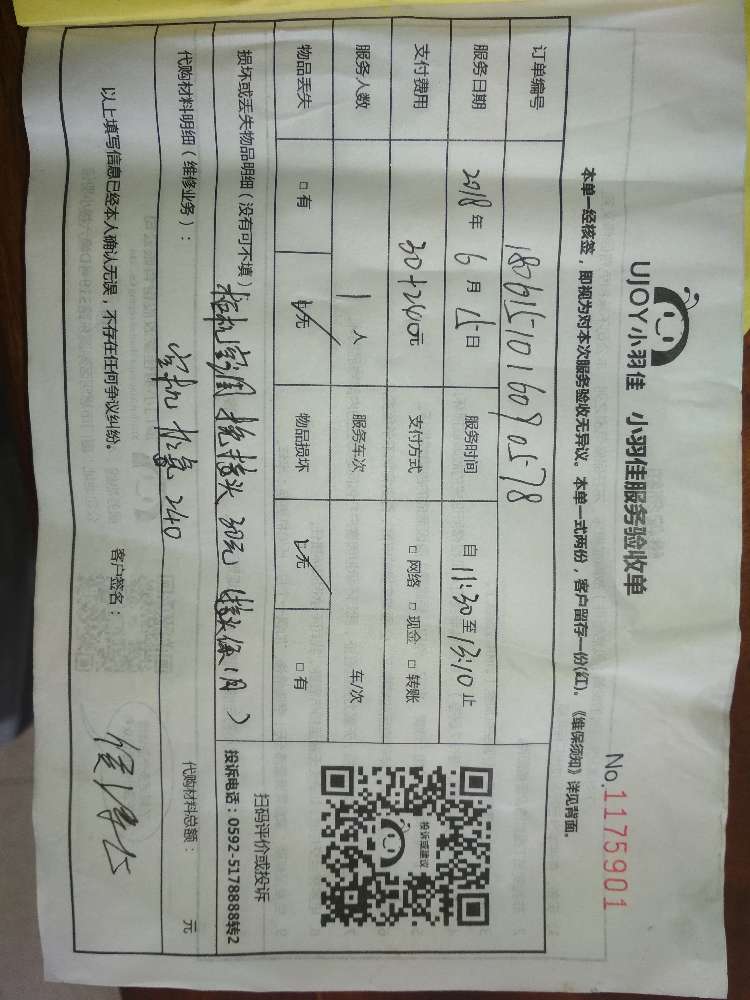 UJOY小羽佳 小羽佳服务验收单
No.1175901
本单一经核签，即视为对本次服务验收无异议。本单一式两份，客户留存一份(红)。《维保须知》详见背面。
订单编号 1806151016090578
服务日期 2018年 6月 15日 服务时间 自 11:30至 13:10止
支付费用 30+240元 支付方式 □网络 □现金 □转账
服务人数 1 人 服务车次 车/次
物品丢失 □有 □无 物品损坏 □无 □有
投诉或建议
扫码评价或投诉
投诉电话：0592-5178888转2
损坏或丢失物品明细（没有可不填）
30元
代购材料明细（维修业务）： 240
代购材料总额： 元
以上填写信息已经本人确认无误，不存在任何争议纠纷。 客户签名：